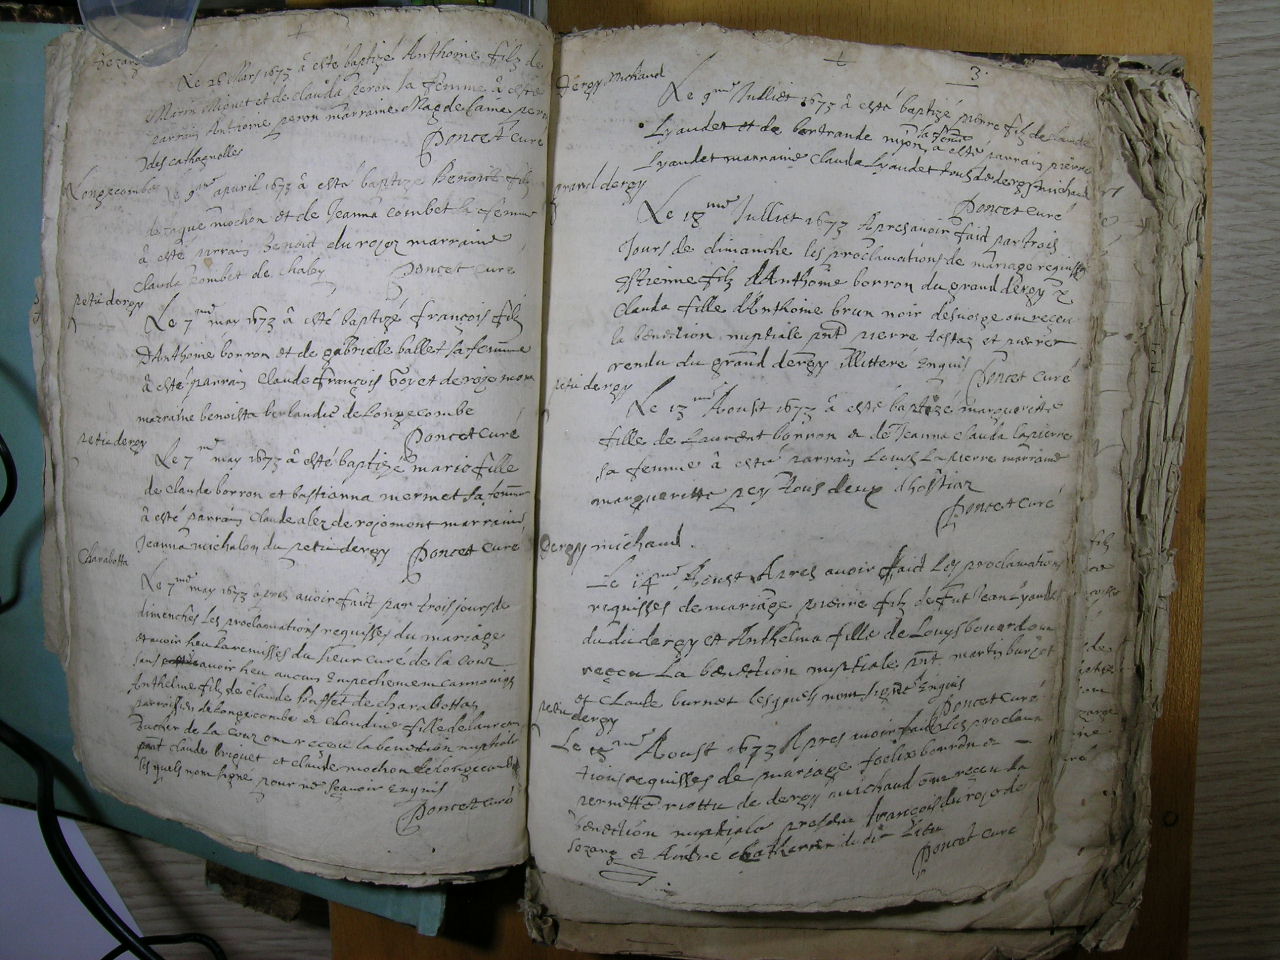 Le 26 Mars 1673 à esté baptizé Anthoine filz de
Marin Monet et de clauda peron sa femme à esté
parrain Antoine peron marraine Magdelaine peron
des cathagnolles
Poncet Curé
Longecombe
Le 9me apvril 1673 à esté baptizé Benoict filz
de Jaque mochon et de Jeanna combet sa femme
à esté parrain Benoict du rojoz marraine
Clauda combet de chaley Poncet curé
petit dergy
Le 7me may 1673 à esté baptizé françois filz
D'Anthoine borron et de gabrielle ballet sa femme
à esté parrain Claude françois goyet de rojemont
marraine benoista berlandié de Longecombe
Poncet Curé
petit dergy
Le 7me may 1673 à esté baptizé marie fille
de claude borron et bastianna mermet sa femme
à esté parrain Claude alez de rojomont marraine
Jeanna michalon du petit dergy Poncet Curé
Charabotta
Le 7me may 1673 apres avoir fait par trois jours de
dimenches Les proclamations requisses du mariage
et avoir heu La remisses du sieur curé de la Couz
sans avoir heu aucun Empechement cannonique
Anthelme filz de claude bosset de charabottaz
parroissien de Longecombe et claudine fille de laurent
Bucher de La Couz ont receu la benediction nuptiale
pnt claude briguet et claude mochon de Longecombe
lesquels n'ont signé pour ne sçavoir Enquis
Poncet Curé
3
dergy michaud
Le 9me Julliet 1673 à esté baptizé pierre filz de claude
Lyaudet et de bertrande mion sa femme à esté parrain pierre
Lyaudet marraine clauda Lyaudet tous de dergy michaud
Poncet Curé
grand dergy
Le 18me Julliet 1673 Apres avoir fait par trois
Jours de dimanche les proclamations de mariage requisse
Estienne filz d'Anthoine borron du grand dergy &
Clauda fille d'Anthoine brun noir d'esuosge ont reçeu
la benedition nuptiale pnt pierre tostaz et pierre
rendu du grand dergy illitteré Enquis
Poncet Curé
petit dergy
Le 13me Aoust 1673 à esté baptizé margueritte
fille de Laurent borron et de Jeanna clauda lapierre
sa femme à esté parrain Louis Lapierre marraine
margueritte pey tous deux d'hostiaz
Poncet Curé
Dergy michaud.
Le 14me Aoust Apres avoir faict Les proclamations
requisses de mariage pierre filz de fut Jean Lyaudet
dudi dergy et Anthelma fille de Louys bouardon
reçeu La benedition nuptiale pnt martin burjet
et Claude burnet lesquels n'ont signé Enquis
Poncet Curé
petit
dergy
Aoust 1673 Apres avoir fait Les proclama
tions requisses de mariage felix borron et
pernette riottu de dergy michaud ont reçeu la
benedition nuptiale presents françois du rojoz de
et André du dit Lieu
Poncet Curé